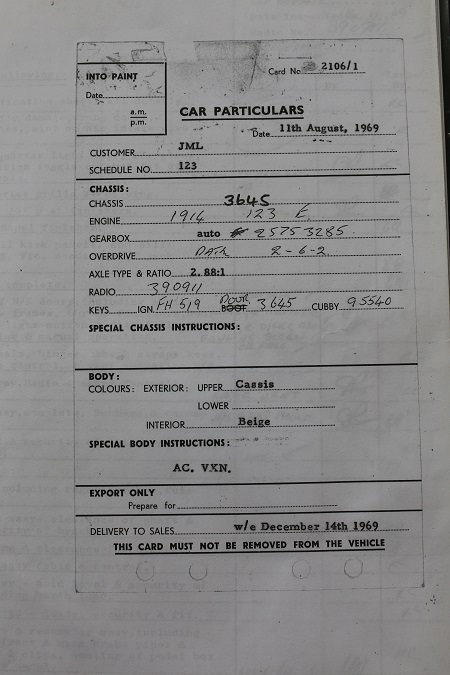 INTO PAINT
Date
a.m.
p.m.
Card No 2106/1
CAR PARTICULARS
Date 11th August, 1969
CUSTOMER JML
SCHEDULE NO. 123
CHASSIS:
CHASSIS 3645
ENGINE 1914 123 E.
GEARBOX auto 25753285.
OVERDRIVE DATE 2-6-2
AXLE TYPE & RATIO 2.88:1
RADIO 390911
KEYS IGN. FH 519 DOOR BOOT 3645 CUBBY 95540
SPECIAL CHASSIS INSTRUCTIONS:
BODY:
COLOURS: EXTERIOR: UPPER Cassis
LOWER
INTERIOR Beige
SPECIAL BODY INSTRUCTIONS:
AC. VXN.
EXPORT ONLY
Prepare for
DELIVERY TO SALES w/e December 14th 1969
THIS CARD MUST NOT BE REMOVED FROM THE VEHICLE